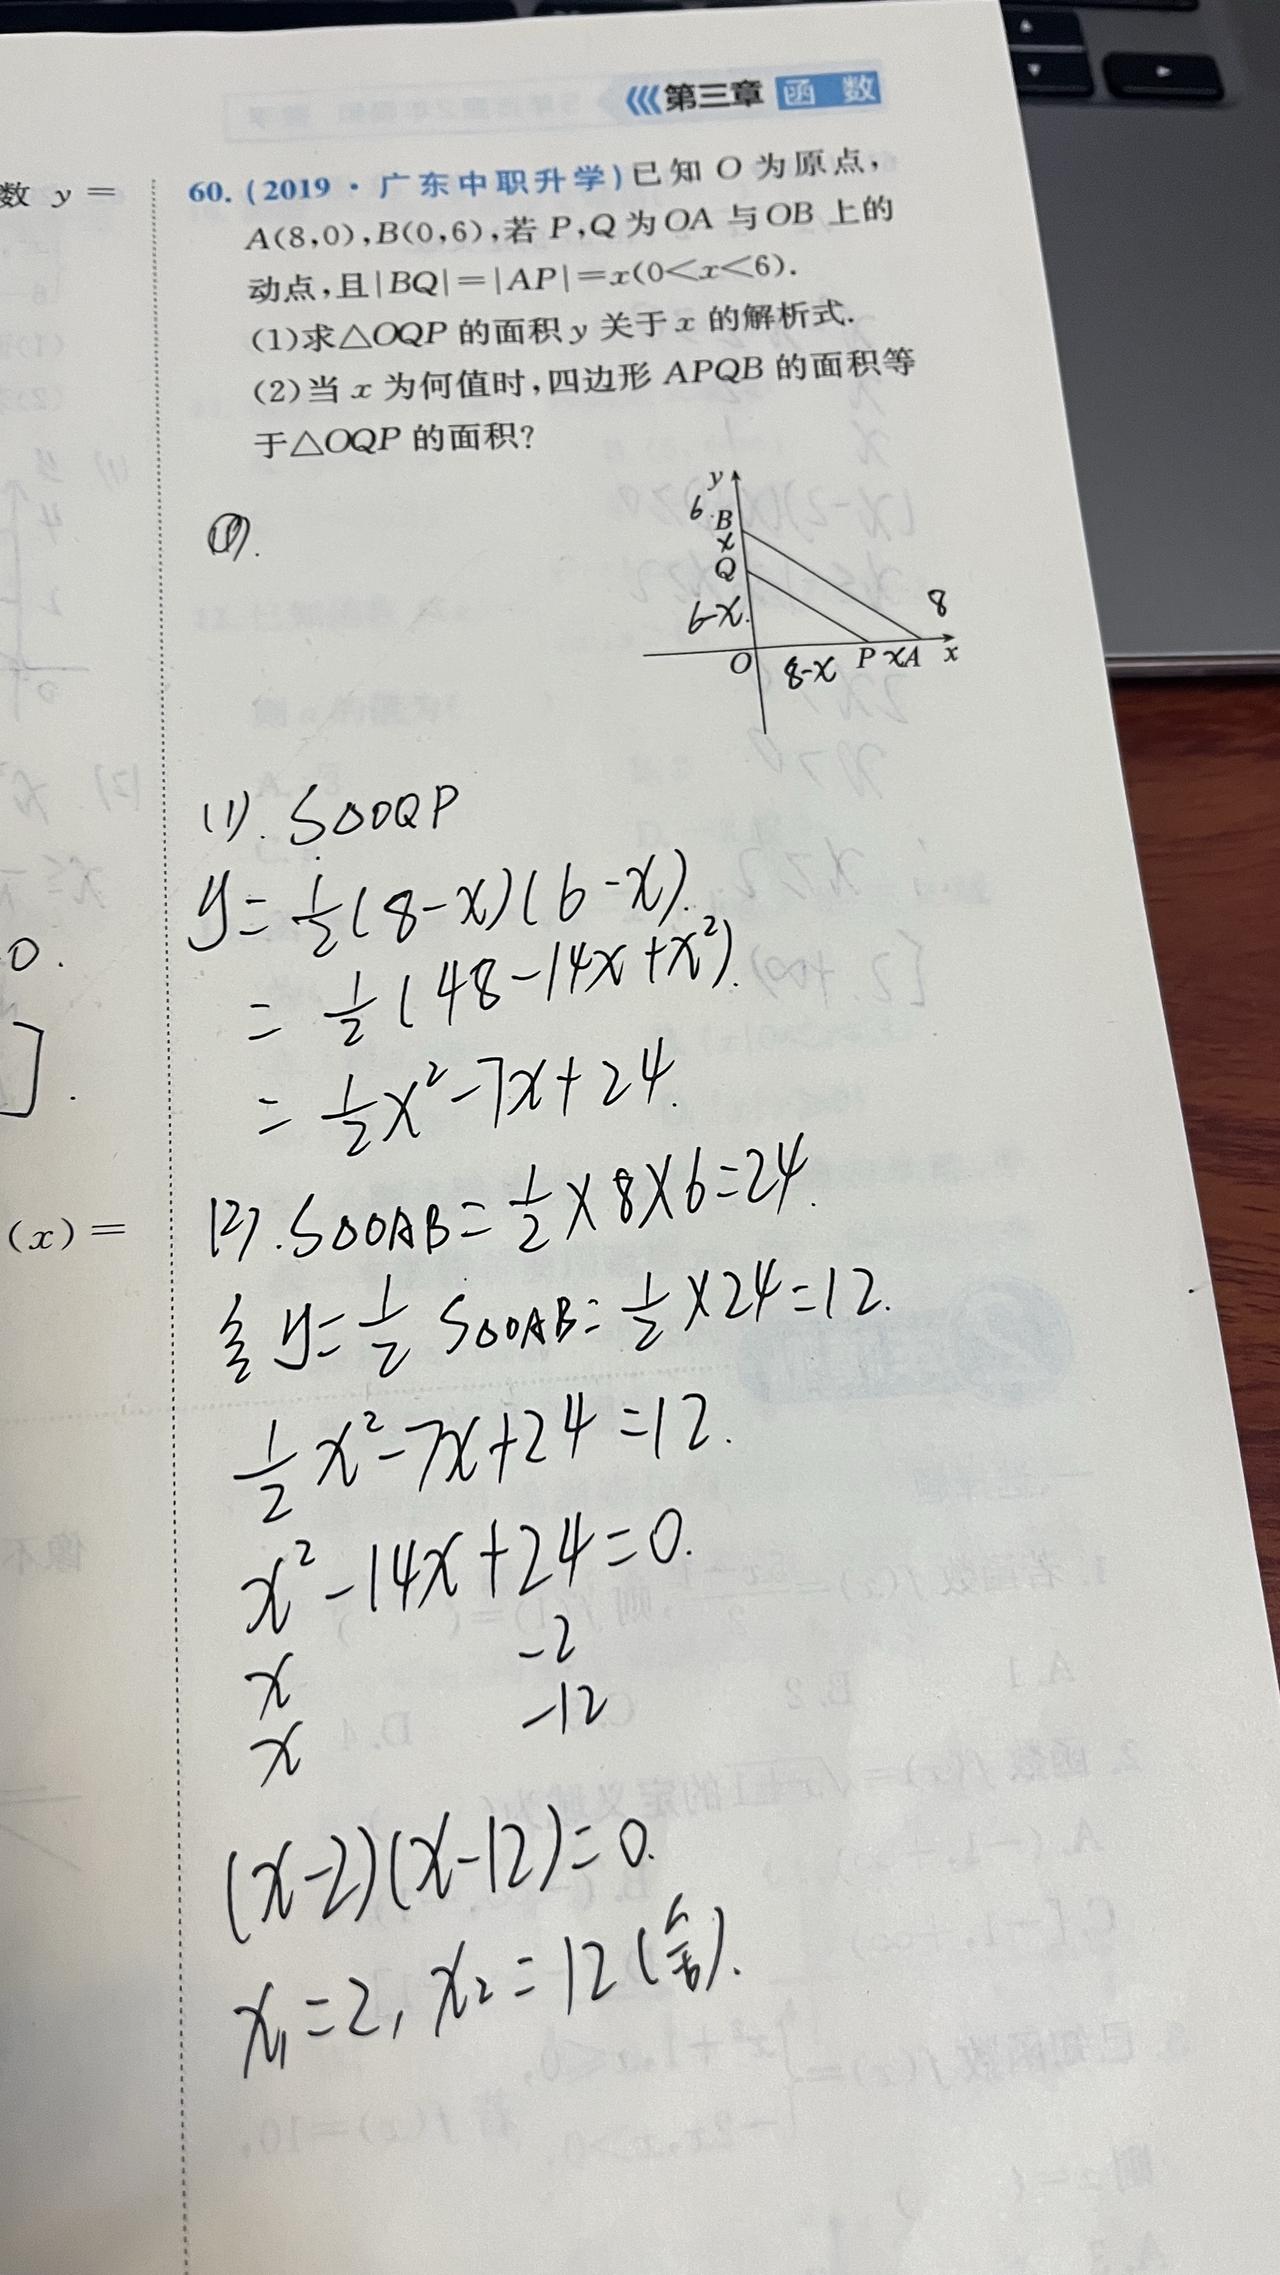 第三章 函 数
数 y =
60. (2019 · 广东中职升学)已知 O 为原点,
A(8,0),B(0,6),若 P,Q 为 OA 与 OB 上的
动点,且|BQ|=|AP|=x(0<x<6).
(1)求△OQP 的面积 y 关于 x 的解析式.
(2)当 x 为何值时,四边形 APQB 的面积等
于△OQP 的面积?
y
6
B
x
Q
6-x.
8
O 8-x P x A x
(1). S△OQP
y=1/2(8-x)(6-x).
=1/2(48-14x+x²).
=1/2x²-7x+24.
0.
].
(x)=
(2). S△OAB=1/2×8×6=24.
y=1/2 S△OAB=1/2×24=12.
1/2x²-7x+24=12.
x²-14x+24=0.
x -2
x -12
(x-2)(x-12)=0.
x₁=2, x₂=12(舍).